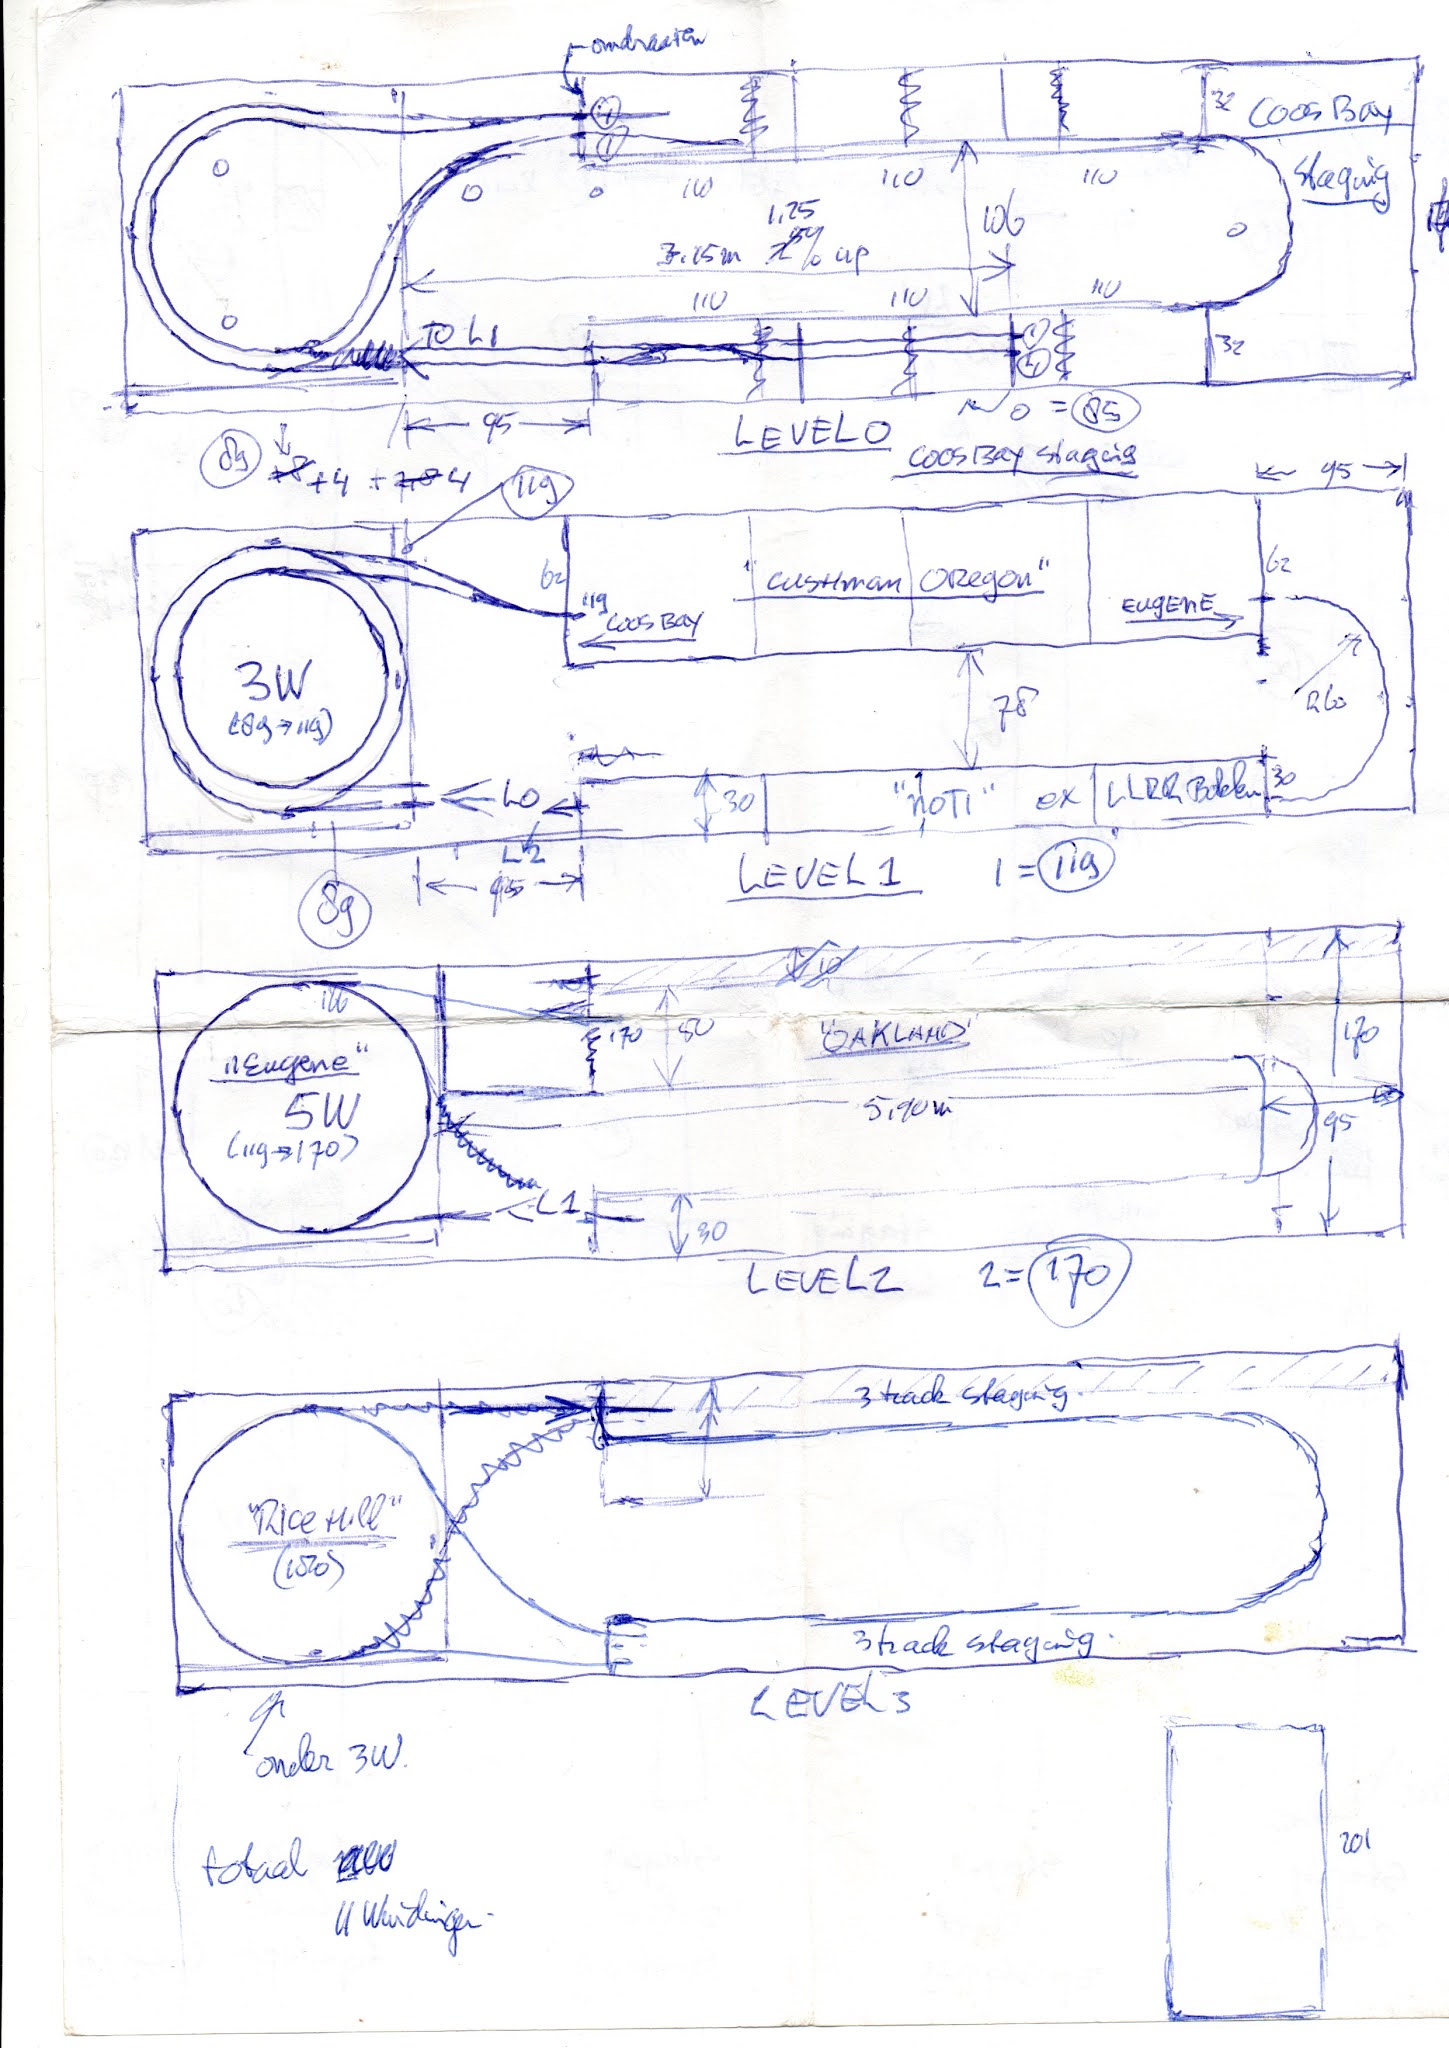 omdraaien
32
COOSBAY
staging
110
110
110
106
1,25
3.15m % up
110
110
110
TO L1
1
2
32
95
0 = 85
LEVEL0
COOSBAY staging
89
+8+4 + 4
119
95
62
62
"CUSHMAN OREGON"
119
COOSBAY
EUGENE
3W
(89→119)
78
R60
L0
L2
30
"NOTI"
ex
LLRR Bakken
30
95
LEVEL1
1 = 119
89
10
"Eugene"
5W
(119→170)
170
80
"OAKLAND"
170
5,90m
95
L1
30
LEVEL2
2 = 170
3 track staging.
"RICE Hill"
3 track staging.
LEVEL3
onder 3W.
totaal
11 Windingen
201